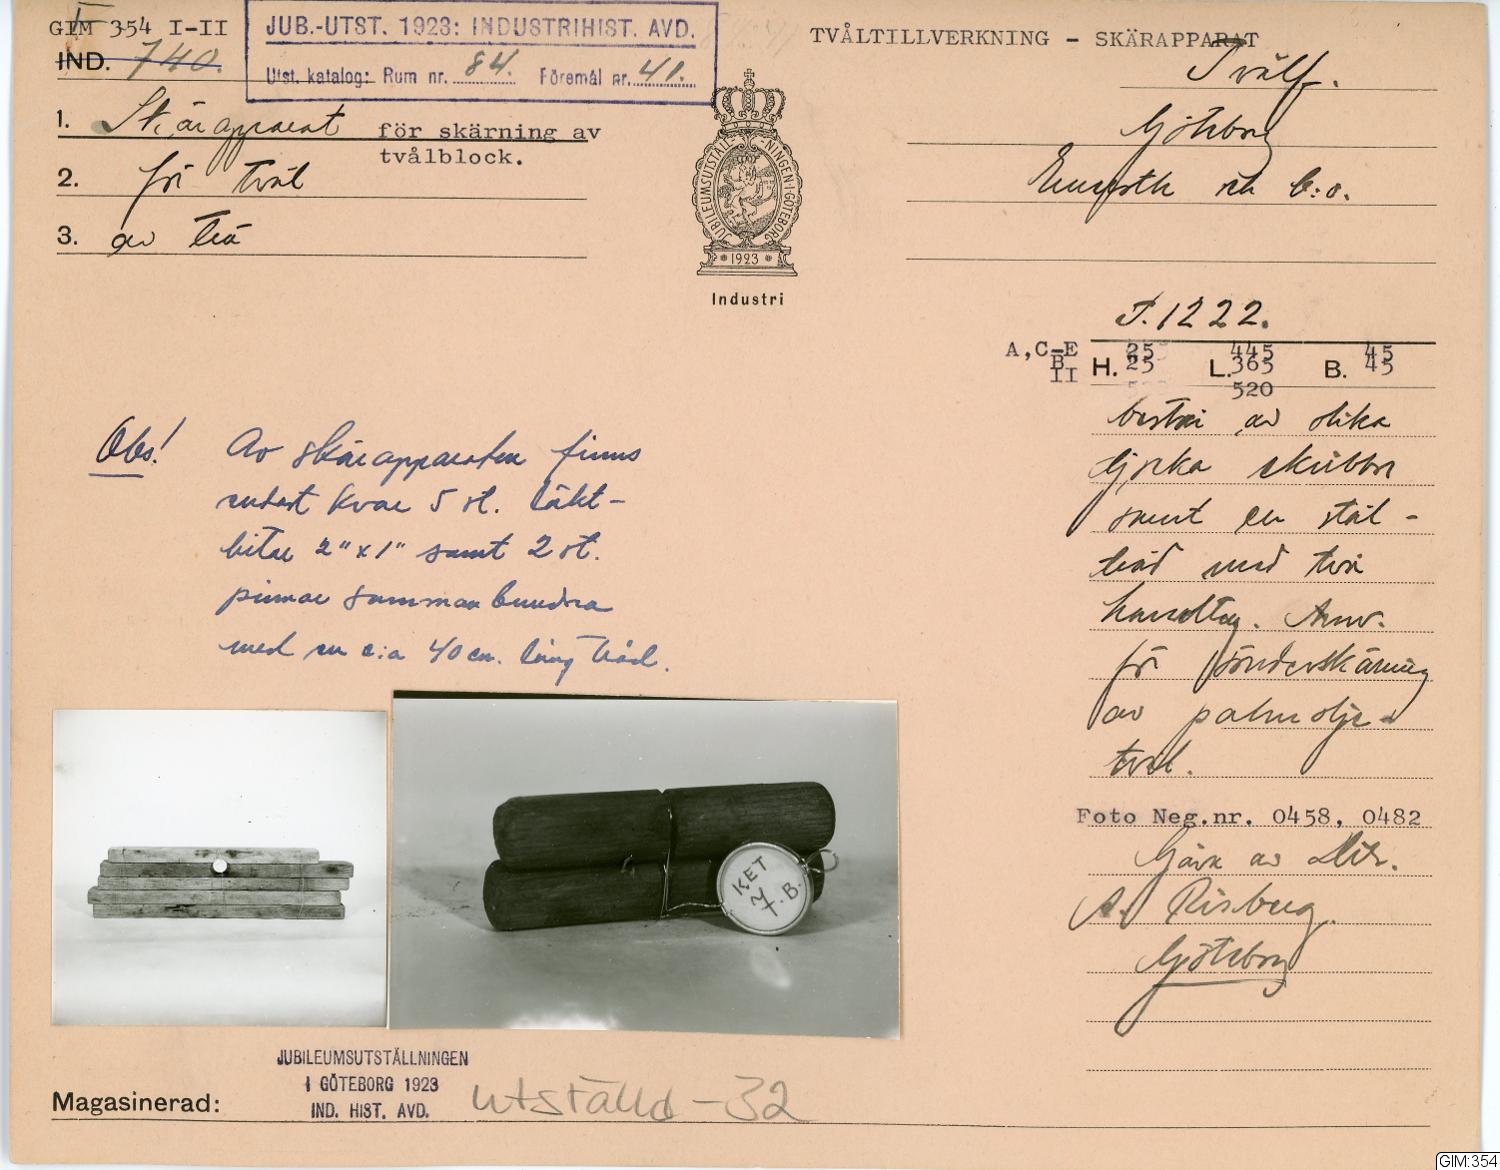 GIM 354 I-II
IND. 740.
JUB.-UTST. 1923: INDUSTRIHIST. AVD.
Utst. katalog: Rum nr. 84. Föremål nr. 41.
TVÅLTILLVERKNING - SKÄRAPPARAT
Tvålf.
Göteborg
1. Skärapparat för skärning av
tvålblock.
2. för tvål
3. av trä
JUBILEUMSUTSTÄLLNINGEN I GÖTEBORG
1923
Industri
och C:o.
T.1222.
A,C-E 25 445 45
B H. 25 L. 365 B. 45
II 520
består av olika
tjocka skubbor
samt en stål-
tråd med två
handtag. Anv.
för sönderskärning
av palmolje-
tvål.
Foto Neg.nr. 0458, 0482
Gåva av Dir.
A. Risberg.
Göteborg
Obs! Av skärapparaten finns
endast kvar 5 st. läkt-
bitar 2"x1" samt 2 st.
pinnar sammanbundna
med en c:a 40 cm. lång tråd.
KET
7.B.
Magasinerad:
JUBILEUMSUTSTÄLLNINGEN
I GÖTEBORG 1923
IND. HIST. AVD.
utställd - 32
GIM:354